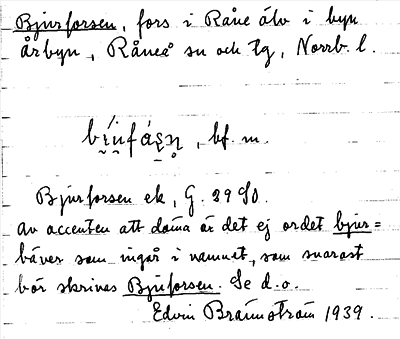 Bjurforsen, fors i Råne älv i byn
Årbyn, Råneå sn och tg, Norrb. l.
bf. m.
Bjurforsen ek, G.
Av accenten att döma är det ej ordet bjur=
bäver som ingår i namnet, som snarast
bör skrivas Bjuforsen. Se d.o.
Edvin Brännström 1939.